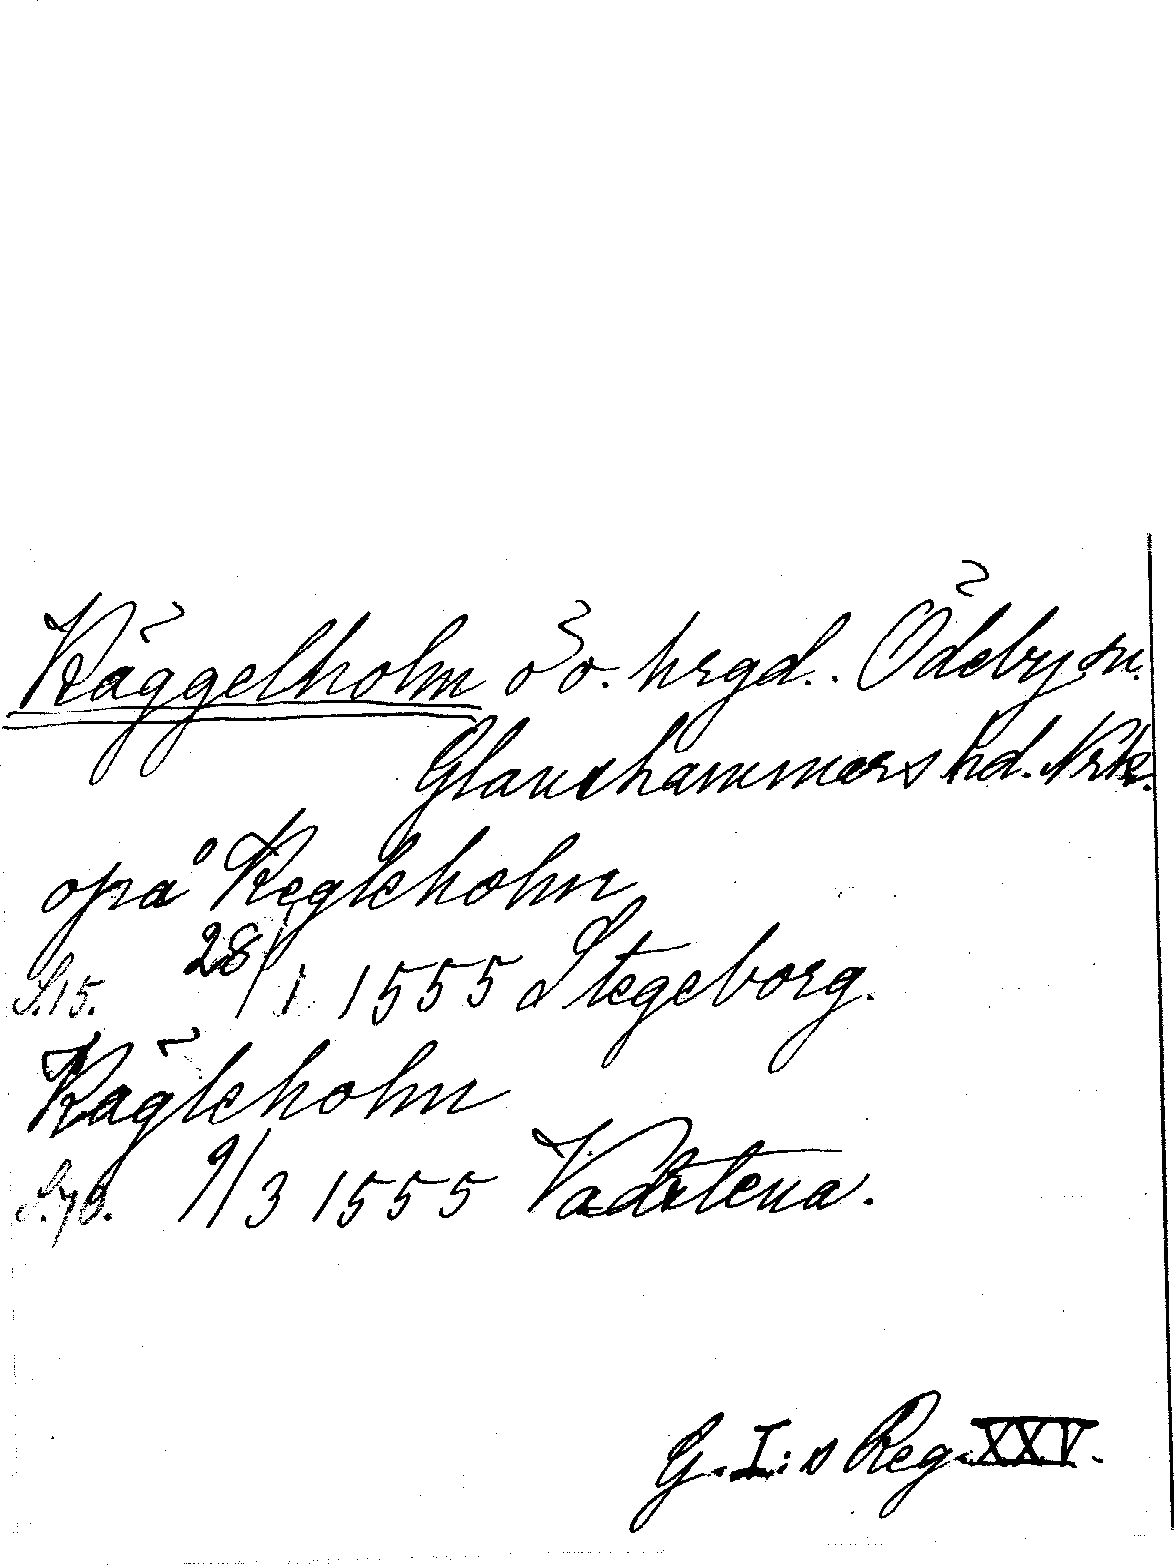 Käggelholm ö o. hrgd. Ödeby sn.
Glanshammars hd. Nrk.
opå Kegleholm
S.15. 28/1 1555 Stegeborg.
Kägleholm
S.70. 9/3 1555 Vadstena.
G. I:s Reg. XXV.